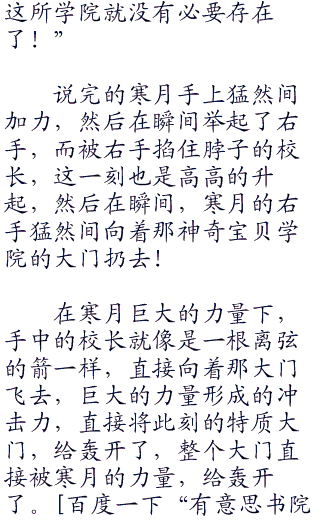 这所学院就没有必要存在
了！”
说完的寒月手上猛然间
加力，然后在瞬间举起了右
手，而被右手掐住脖子的校
长，这一刻也是高高的升
起，然后在瞬间，寒月的右
手猛然间向着那神奇宝贝学
院的大门扔去！
在寒月巨大的力量下，
手中的校长就像是一根离弦
的箭一样，直接向着那大门
飞去，巨大的力量形成的冲
击力，直接将此刻的特质大
门，给轰开了，整个大门直
接被寒月的力量，给轰开
了。[百度一下“有意思书院